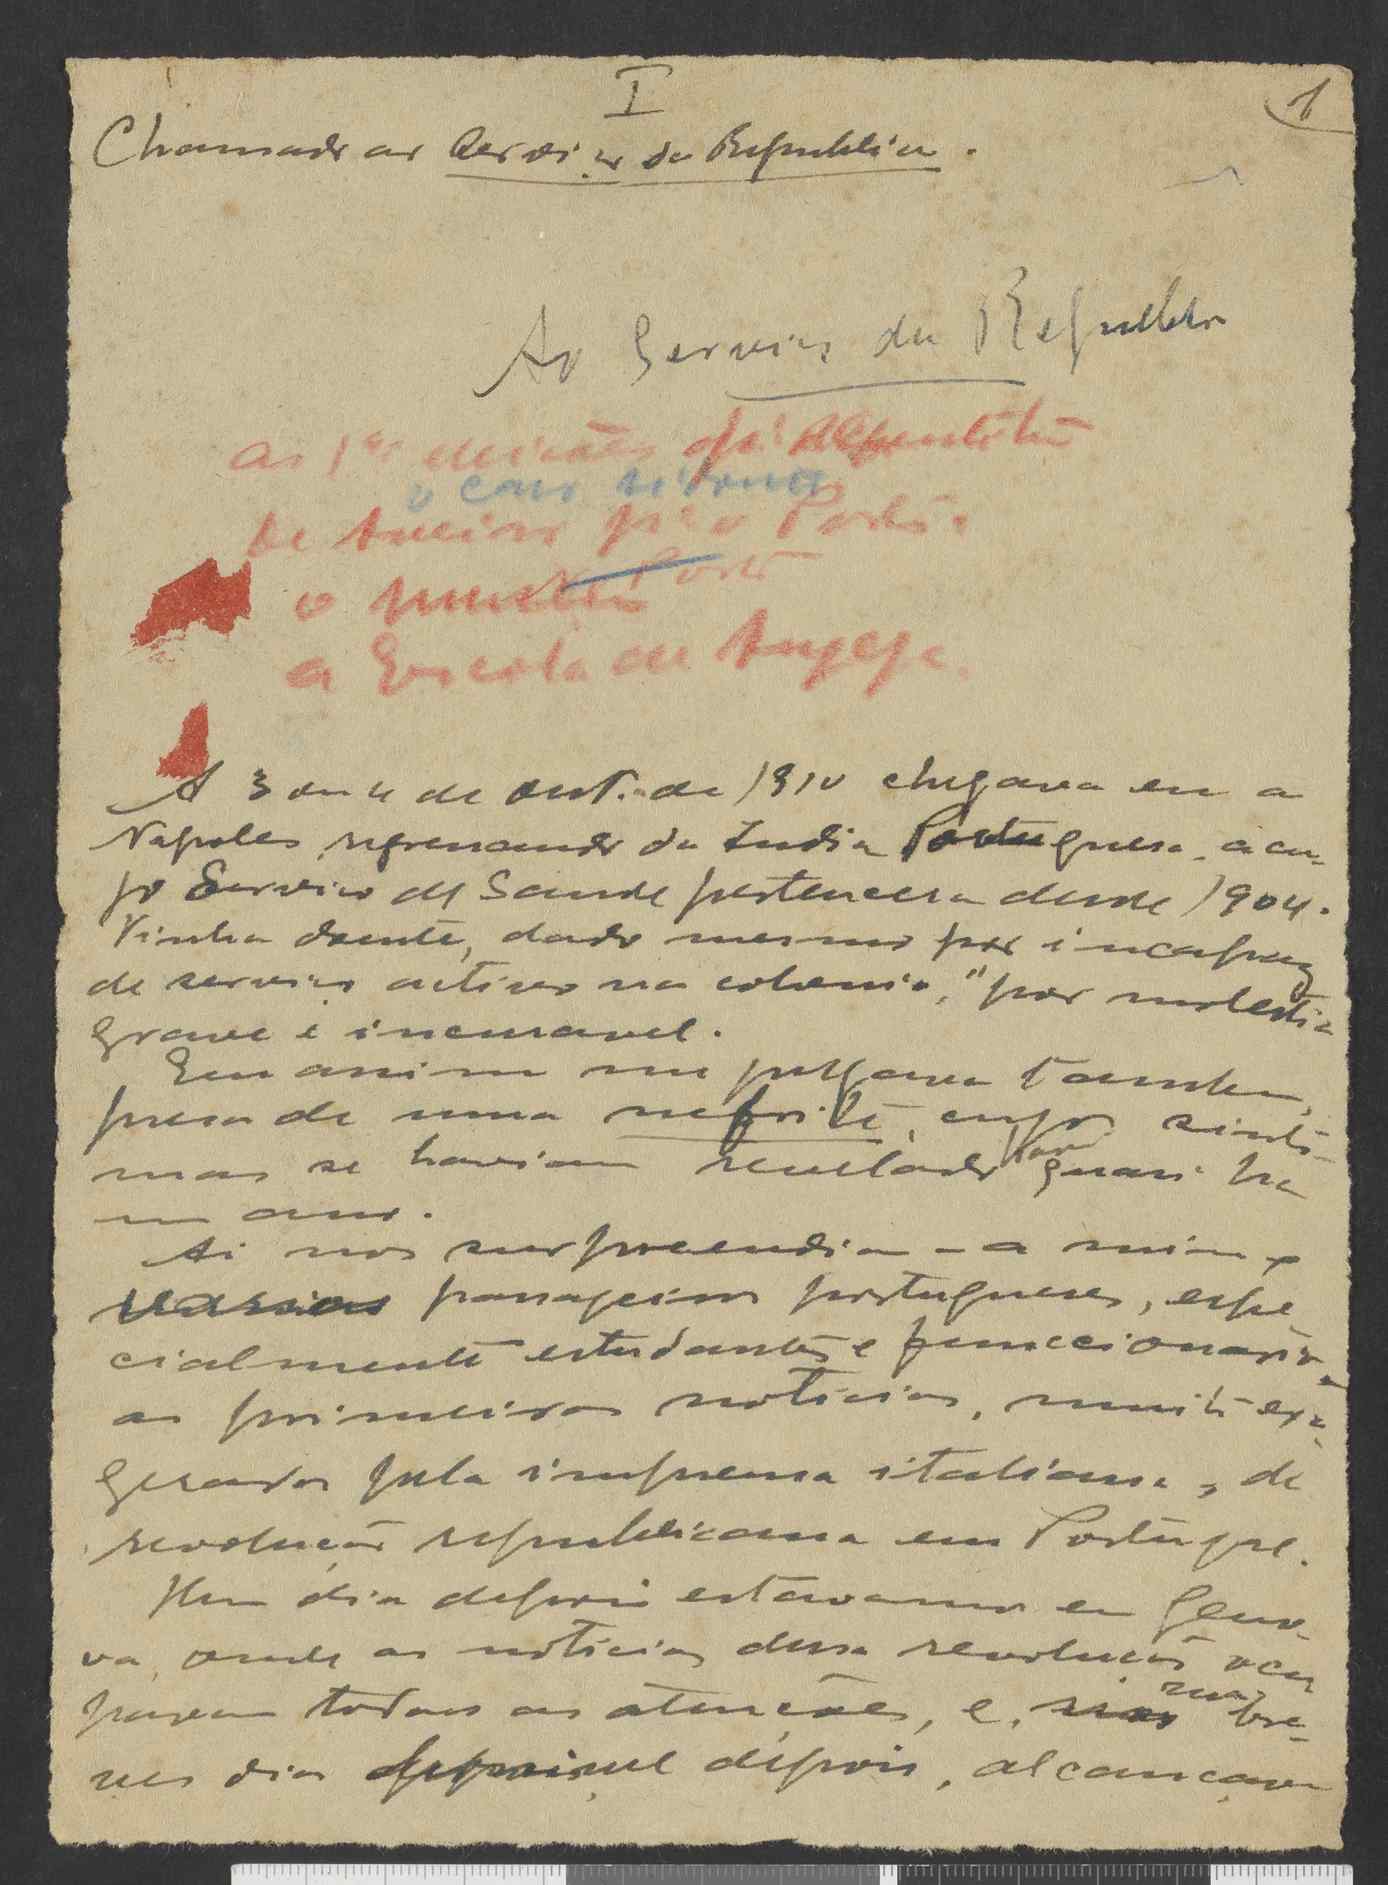 I
1
Chamado ao Serviço da Republica.
Ao Serviço da Republica
As 1as
o caso
De Aveiro p.a o Porto
o
a Escola de Angeja.
A 3 ou 4 de out. de 1910 chegava eu a
Napoles, regressando da India Portuguesa, a cu-
jo Serviço de Saude pertencera desde 1904.
Vinha doente, dado mesmo por incapaz
de serviço activo na colonia, "por molestia
grave e incuravel.
Eu assim me julgava tambem,
presa de uma nefrite, cujos sinto-
mas se haviam revelado quasi ha
um ano.
Ai nos surpreendia - a mim e
varios passageiros portugueses, espe
cialmente estudantes e funccionarios,
as primeiras noticias, muito exa-
geradas pela imprensa italiana, da
revolução republicana em Portugal.
Um dia depois estavamos em Geno-
va, onde as noticias dessa revolução ocu
pavam todas as atenções, e, uns bre-
ves dias depois, alcançava